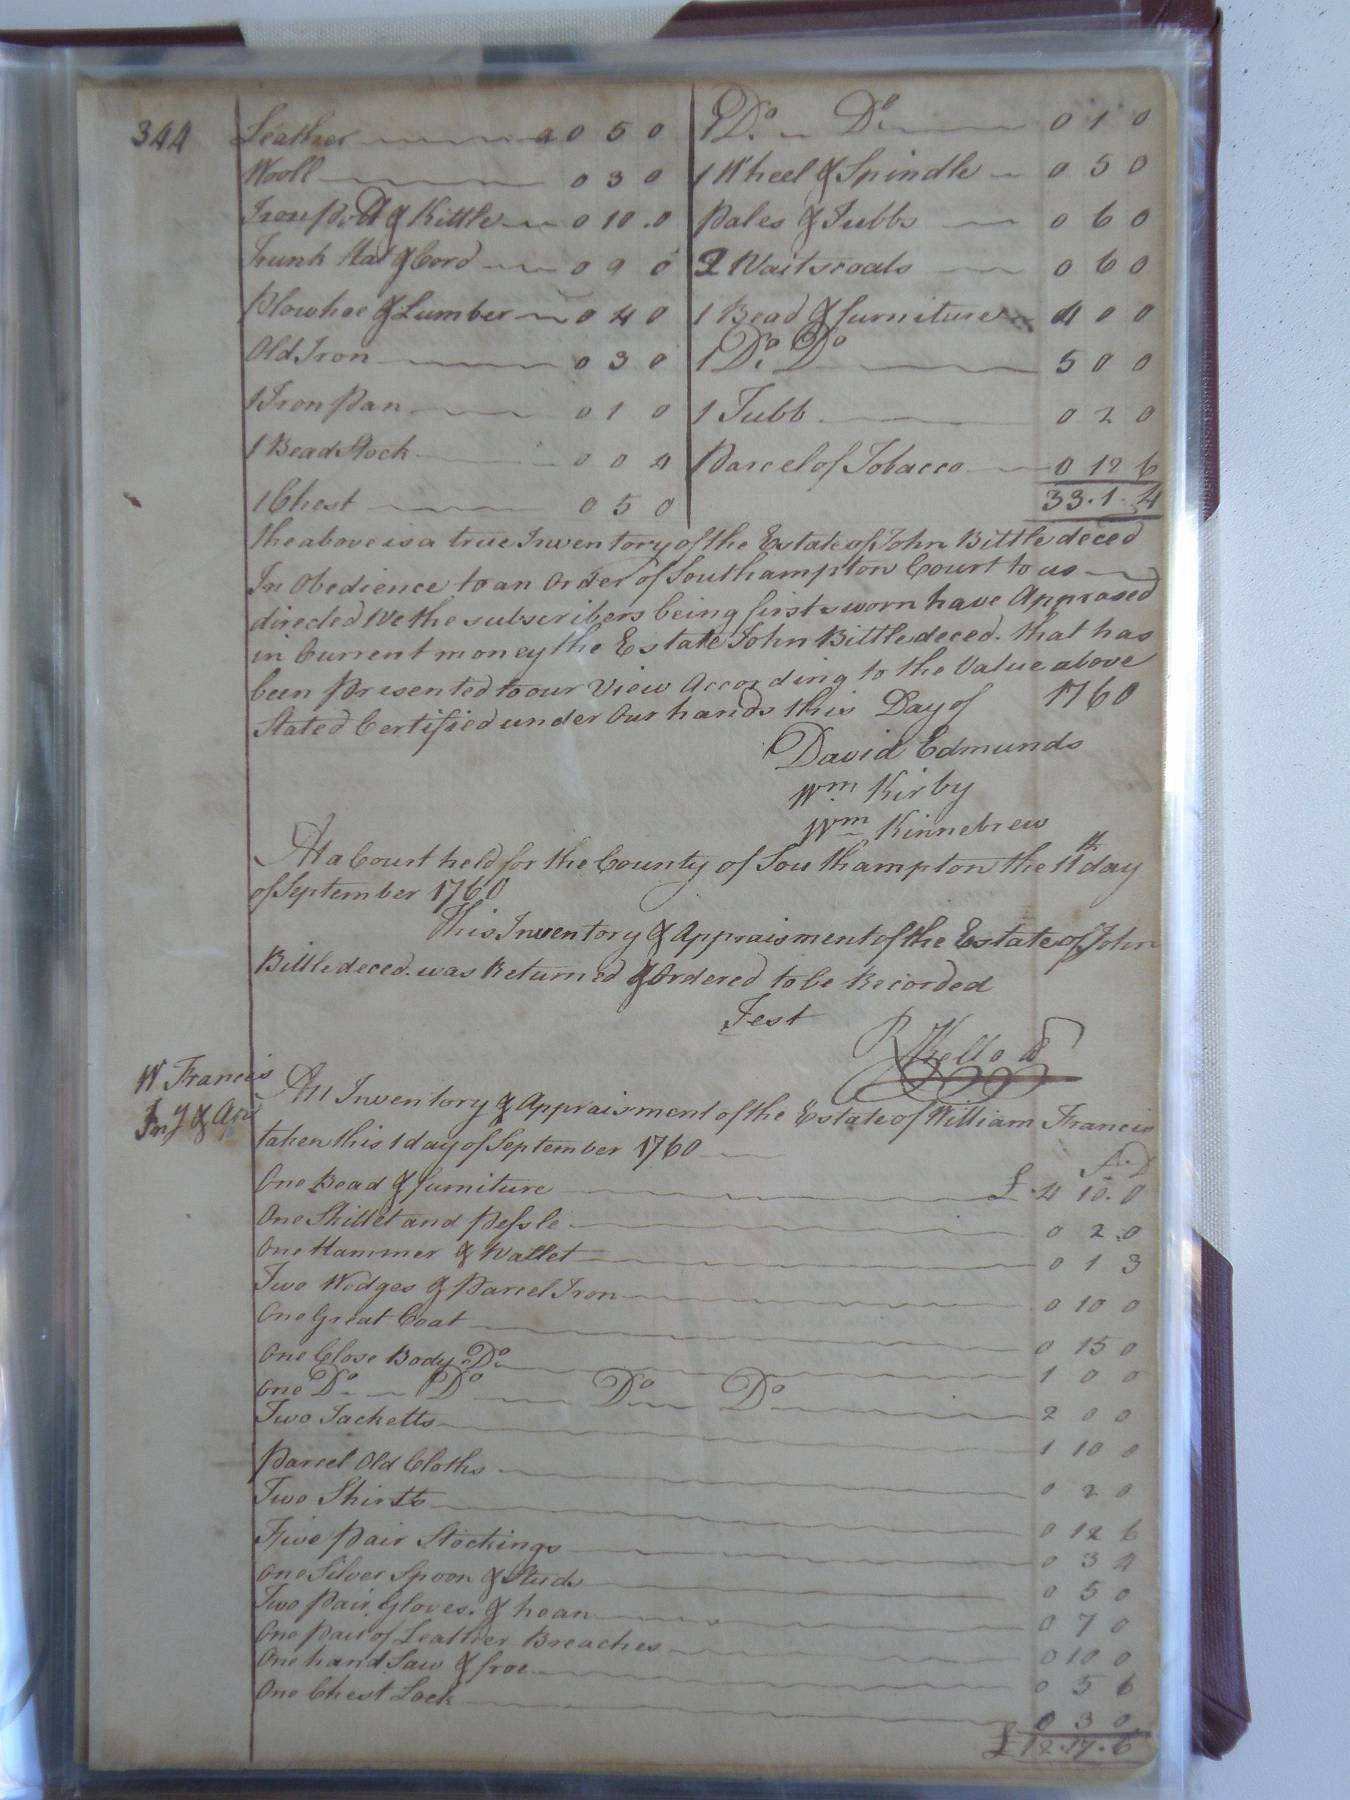 344
Leather 0 5 0
Wooll 0 3 0
Iron pott & Kittle 0 10 0
Trunk Hat & Cord 0 9 0
plowhoe & Lumber 0 4 0
Old Iron 0 3 0
1 Iron pan 0 1 0
1 Bead Stock 0 0 4
1 Chest 0 5 0
1 Do. Do. 0 1 0
1 Wheel & Spindle 0 5 0
pales & Tubbs 0 6 0
2 Waitscoats 0 6 0
1 Bead & furniture 4 0 0
1 Do. Do 5 0 0
1 Tubb 0 2 0
parcel of Tobacco 0 12 6
33.1.4
the above is a true Inventory of the Estate of John Bittle deced
In Obedience to an Order of Southampton Court to us
directed We the subscribers being first sworn have Apprased
in Current money the Estate John Bittle deced. that has
been presented to our View According to the Value above
Stated Certified under Our hands this Day of 1760
David Edmunds
Wm Kirby
Wm Kinnebrew
At a Court held for the County of Southampton the 11th day
of September 1760
This Inventory & Appraisment of the Estate of John
Bittle deced. was Returned & Ordered to be Recorded
Test
R Kello
W Francis
Iny & Ap
An Inventory & Appraisment of the Estate of William Francis
taken this 1 day of September 1760
S. D
One Bead & furniture £ 4 10. 0
One Skillet and pessle 0 2.0
One Hammer & Wallet 0 1 3
Two Wedges & Parcel Iron 0 10 0
One Great Coat 0 15 0
One Close Body Do. 1 0 0
One Do. Do Do Do 2 0 0
Two Jacketts 1 10 0
parcel Old Cloths 0 2 0
Two Shirts 0 12 6
Five pair Stockings 0 3 4
One Silver Spoon & Studs 0 5 0
Two pair Gloves. & hoan 0 7 0
One pair of Leather Breaches 0 10 0
One hand Saw & froe 0 5 6
One Chest Lock 0 3 0
£ 12.17.6